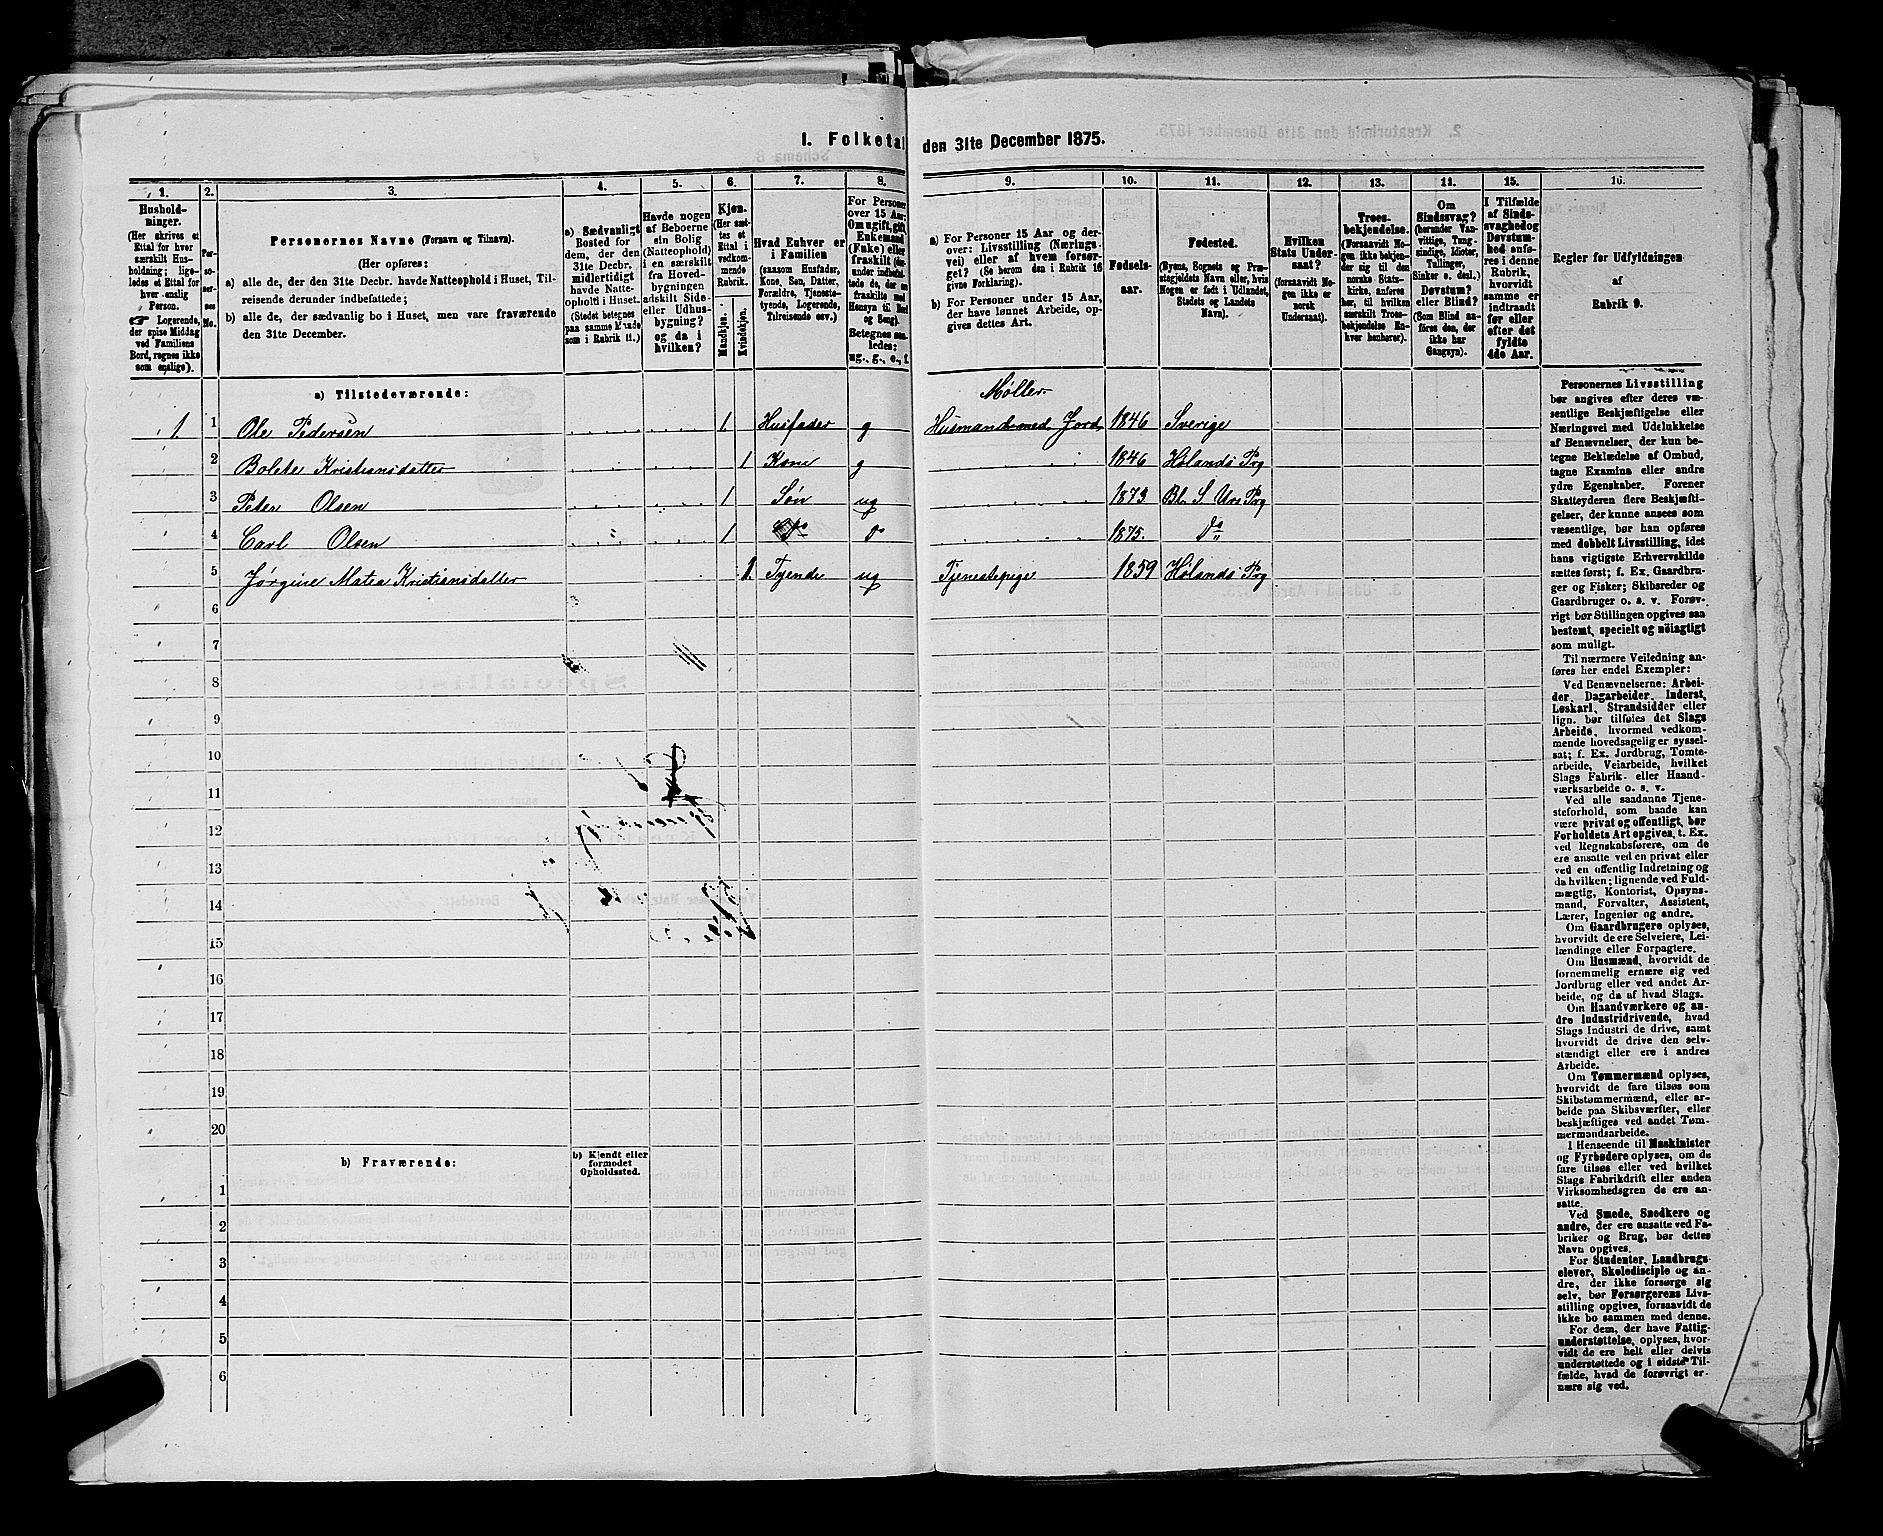 1. Folketal den 31te December 1875.
1. 2. 3. 4. 5. 6. 7. 8. 9. 10. 11. 12. 13. 14. 15. 16.
Hushold-
ninger.
(Her skrives et
Ettal for hver
særskilt Hus-
holdning; lige-
ledes et Ettal for
hver enslig
Person.
☞ Logerende,
der spise Middag
ved Familiens
Bord, regnes ikke
som enslige).
Per-
so-
ner-
nes
No.
Personernes Navne (Fornavn og Tilnavn).
(Her opføres:
a) alle de, der den 31te Decbr. havde Natteophold i Huset, Til-
reisende derunder indbefattede;
b) alle de, der sædvanlig bo i Huset, men vare fraværende
den 31te December.
a) Sædvanligt
Bosted for
dem, der den
31te Decbr.
midlertidigt
havde Natte-
ophold i Huset.
(Stedet betegnes
paa samme Maade
som i Rubrik 11.)
Havde nogen
af Beboerne
sin Bolig
(Natteophold)
i en særskilt
fra Hoved-
bygningen
adskilt Side-
eller Udhus-
bygning?
og da i
hvilken?
Kjøn.
(Her sæt-
tes et
Ettal i
vedkom-
mende
Rubrik.
Mandkjøn.
Kvindekjøn.
Hvad Enhver er
i Familien
(saasom Husfader,
Kone, Søn, Datter,
Forældre, Tjeneste-
tyende, Logerende,
Tilreisende osv.)
For Personer
over 15 Aar:
Om ugift, gift,
Enkemand
(Enke) eller
fraskilt (der-
under indbefat-
tede de, der ere
fraskilte med
Hensyn til Bord
og Seng).
Betegnes saa-
ledes:
ug., g., e., f.
a) For Personer 15 Aar og der-
over: Livsstilling (Nærings-
vei) eller af hvem forsør-
get? (Se herom den i Rubrik 16
givne Forklaring).
b) For Personer under 15 Aar,
der have lønnet Arbeide, op-
gives dettes Art.
Fødsels-
aar.
Fødested.
(Byens, Sognets og Præ-
stegjeldets Navn eller, hvis
Nogen er født i Udlandet,
Stedets og Landets
Navn).
Hvilken
Stats Under-
saat?
(forsaavidt No-
gen ikke er
norsk
Undersaat).
Troes-
bekjendelse.
(Forsaavidt No-
gen ikke bekjen-
der sig til den
norske Stats-
kirke, anføres
her, til hvilken
særskilt Troes-
bekjendelse En-
hver henhører).
Om
Sindssvag?
(herunder Van-
vittige, Tung-
sindige, Idioter,
Tullinger,
Sinker o. desl.,)
Døvstum?
eller Blind?
(Som Blind an-
føres den, der
ikke har
Gangsyn).
I Tilfælde
af Sinds-
svaghed og
Døvstum-
hed anfø-
res i denne
Rubrik,
hvorvidt
samme er
indtraadt
før eller
efter det
fyldte
4de Aar.
Regler for Udfyldningen
af
Rubrik 9.
a) Tilstedeværende:
Møller
1. 1 Ole Pedersen 1. Husfader g Husmand med Jord 1846 Sverige
2 Bolette Kristiansdatter 1 Kone g 1846 Hølands Prg
3 Peder Olsen 1 Søn ug 1873
4 Carl Olsen 1 Do 1875. Do
5 Jørgine Matea Kristiansdatter 1. Tyende ug Tjenestepige 1859 Hølands Prg
6
7
8
9
10
11
12
13
14
15
16
17
18
19
20
b) Fraværende:
b) Kjendt eller
formodet
Opholdssted.
1
2
3
4
5
6
Personernes Livsstilling
bør angives efter deres væ-
sentlige Beskjæftigelse eller
Næringsvei med Udelukkelse
af Benævnelser, der kun be-
tegne Beklædelse af Ombud,
tagne Examina eller andre
ydre Egenskaber. Forener
Skatteyderen flere Beskjæfti-
gelser, der kunne ansees som
væsentlige, bør han opføres
med dobbelt Livsstilling, idet
hans vigtigste Erhvervskilde
sættes først; f. Ex. Gaardbru-
ger og Fisker; Skibsreder og
Gaardbruger o. s. v. Forøv-
rigt bør Stillingen opgives saa
bestemt, specielt og nöiagtigt
som muligt.
Til nærmere Veiledning an-
føres her endel Exempler:
Ved Benævnelserne: Arbei-
der, Dagarbeider, Inderst,
Løskarl, Strandsidder eller
lign. bør tilføies det Slags
Arbeide, hvormed vedkom-
mende hovedsagelig er syssel-
sat; f. Ex. Jordbrug, Tomte-
arbeide, Veiarbeide, hvilket
Slags Fabrik- eller Haand-
værksarbeide o. s. v.
Ved alle saadanne Tjene-
steforhold, som baade kan
være privat og offentligt, bør
Forholdets Art opgives, t. Ex.
ved Regnskabsførere, om de
ere ansatte ved en privat eller
ved en offentlig Indretning og
da hvilken; lignende ved Fuld-
mægtig, Kontorist, Opsyns-
mand, Forvalter, Assistent,
Lærer, Ingeniør og andre.
Om Gaardbrugere oplyses,
hvorvidt de ere Selveiere, Lei-
lændinge eller Forpagtere.
Om Husmænd, hvorvidt de
fornemmelig ernære sig ved
Jordbrug eller ved andet Ar-
beide, og da af hvad Slags.
Om Haandværkere og an-
dre Industridrivende, hvad
Slags Industri de drive, samt
hvorvidt de drive den selv-
stændigt eller ere i andres
Arbeide.
Om Tømmermænd oplyses,
hvorvidt de fare tilsøs som
Skibstømmermænd, eller ar-
beide paa Skibsværfter, eller
beskjæftiges ved andet Tøm-
mermandsarbeide.
I Henseende til Maskinister
og Fyrbødere oplyses, om de
fare tilsøs eller ved hvilket
Slags Fabrikdrift eller anden
Virksomhedsgren de ere an-
satte.
Ved Smede, Snedkere og
andre, der ere ansatte ved Fa-
briker og Brug, bør dettes
Navn opgives.
For Studenter, Landbrugs-
elever, Skoledisciple og an-
dre, der ikke forsørge sig
selv, bør Forsørgerens Livs-
stilling opgives, forsaavidt de
ikke bo sammen med denne.
For dem, der have Fattig-
understøttelse, oplyses, hvor-
vidt de ere helt eller delvis
understøttede og i sidste Til-
fælde, hvad de forøvrigt er-
nære sig ved.